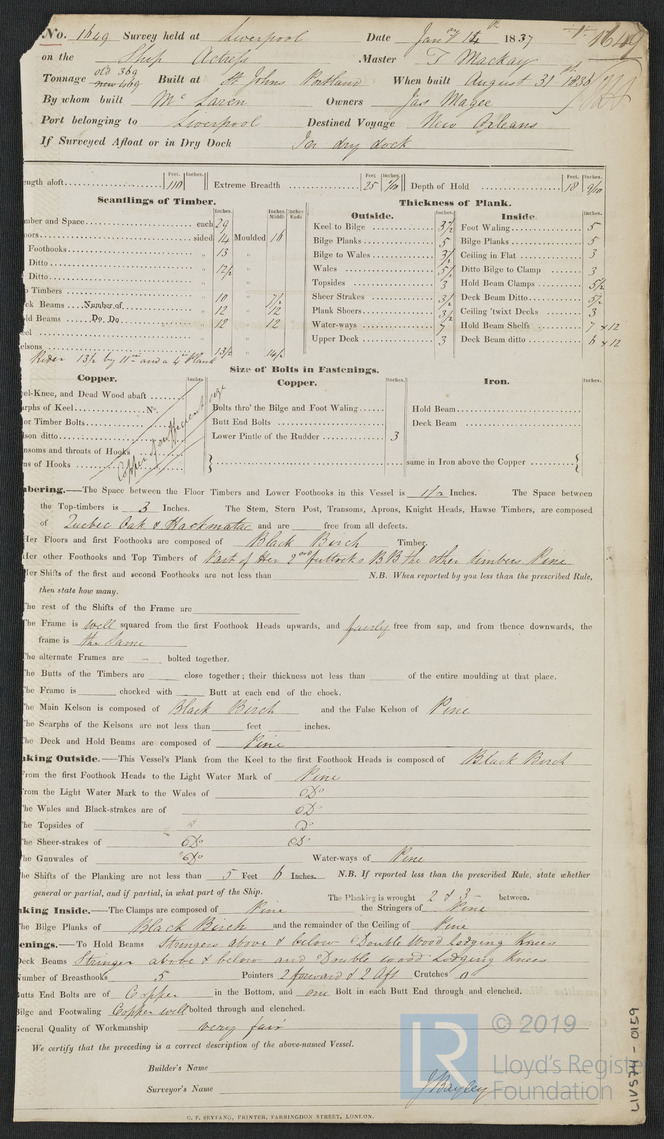 No. 1649 Survey held at Liverpool Date Jany 14th 1837
1649
on the Ship Actress Master T Mackay
Tonnage old 369 new 409 Built at St Johns Portland When built August 31st 1836
By whom built Mc Laren Owners Jas Magee
Port belonging to Liverpool Destined Voyage New Orleans
If Surveyed Afloat or in Dry Dock In dry dock
ength aloft 110 Feet. Inches. Extreme Breadth 25 Feet Inches. Depth of Hold 18 9/10 Feet. Inches.
Scantlings of Timber. Thickness of Plank.
Inches. Inches. Middle Inches. Ends Outside. Inches. Inside. Inches.
mber and Space each 29 Keel to Bilge 3½ Foot Waling 5
oors sided 14 Moulded 16 Bilge Planks 5 Bilge Planks 5
Foothooks „ 13 „ Bilge to Wales 3½ Ceiling in Flat 3
Ditto „ 12½ „ Wales 5½ Ditto Bilge to Clamp 3
Ditto „ „ Topsides 3 Hold Beam Clamps 5½
p Timbers 10 7½ Sheer Strakes 3½ Deck Beam Ditto 5½
ck Beams Number of 12 12 Plank Sheers 3½ Ceiling 'twixt Decks 3
old Beams Do. Do 12 12 Water-ways 7 Hold Beam Shelfs 7 x 12
eel Upper Deck 3 Deck Beam ditto 6 x 12
elsons 13½ 14½
Rider 13½ by 11in and a 4in Plank
Size of Bolts in Fastenings.
Copper. Inches. Copper. Inches. Iron. Inches.
el-Knee, and Dead Wood abaft
arphs of Keel No. Bolts thro' the Bilge and Foot Waling Hold Beam
or Timber Bolts Butt End Bolts Deck Beam
lson ditto Lower Pintle of the Rudder 3
nsoms and throats of Hooks
ms of Hooks same in Iron above the Copper
Copper of sufficient size
mbering.—The Space between the Floor Timbers and Lower Foothooks in this Vessel is 1½ Inches. The Space between
the Top-timbers is 3 Inches. The Stem, Stern Post, Transoms, Aprons, Knight Heads, Hawse Timbers, are composed
of Quebec Oak & Hackmatac and are free from all defects.
Her Floors and first Foothooks are composed of Black Birch Timber.
Her other Foothooks and Top Timbers of Part of Her 2nd futtocks B B the other timbers Pine
Her Shifts of the first and second Foothooks are not less than N.B. When reported by you less than the prescribed Rule,
then state how many.
The rest of the Shifts of the Frame are
The Frame is well squared from the first Foothook Heads upwards, and fairly free from sap, and from thence downwards, the
frame is the same
The alternate Frames are bolted together.
The Butts of the Timbers are close together; their thickness not less than of the entire moulding at that place.
The Frame is chocked with Butt at each end of the chock.
The Main Kelson is composed of Black Birch and the False Kelson of Pine
The Scarphs of the Kelsons are not less than feet inches.
The Deck and Hold Beams are composed of Pine
nking Outside.—This Vessel's Plank from the Keel to the first Foothook Heads is composed of Black Birch
From the first Foothook Heads to the Light Water Mark of Pine
From the Light Water Mark to the Wales of Do
The Wales and Black-strakes are of Do
The Topsides of Do
The Sheer-strakes of Do Do
The Gunwales of Do Water-ways of Pine
The Shifts of the Planking are not less than 5 Feet 6 Inches. N.B. If reported less than the prescribed Rule, state whether
general or partial, and if partial, in what part of the Ship. The Planking is wrought 2 & 3 between.
nking Inside.—The Clamps are composed of Pine the Stringers of Pine
The Bilge Planks of Black Birch and the remainder of the Ceiling of Pine
enings.—To Hold Beams Stringers above & below Double Wood Lodging Knees
Deck Beams Stringer above & below and Double wood Lodging Knees
Number of Breasthooks 5 Pointers 2 forward & 2 Aft Crutches 0
Butts End Bolts are of Copper in the Bottom, and one Bolt in each Butt End through and clenched.
Bilge and Footwaling Copper well bolted through and clenched.
General Quality of Workmanship very fair
We certify that the preceding is a correct description of the above-named Vessel.
Builder's Name
Surveyor's Name J Bayley
C. F. SEYFANG, PRINTER, FARRINGDON STREET, LONDON.
LR © 2019
Lloyd's Register
Foundation
LIVS74-0159